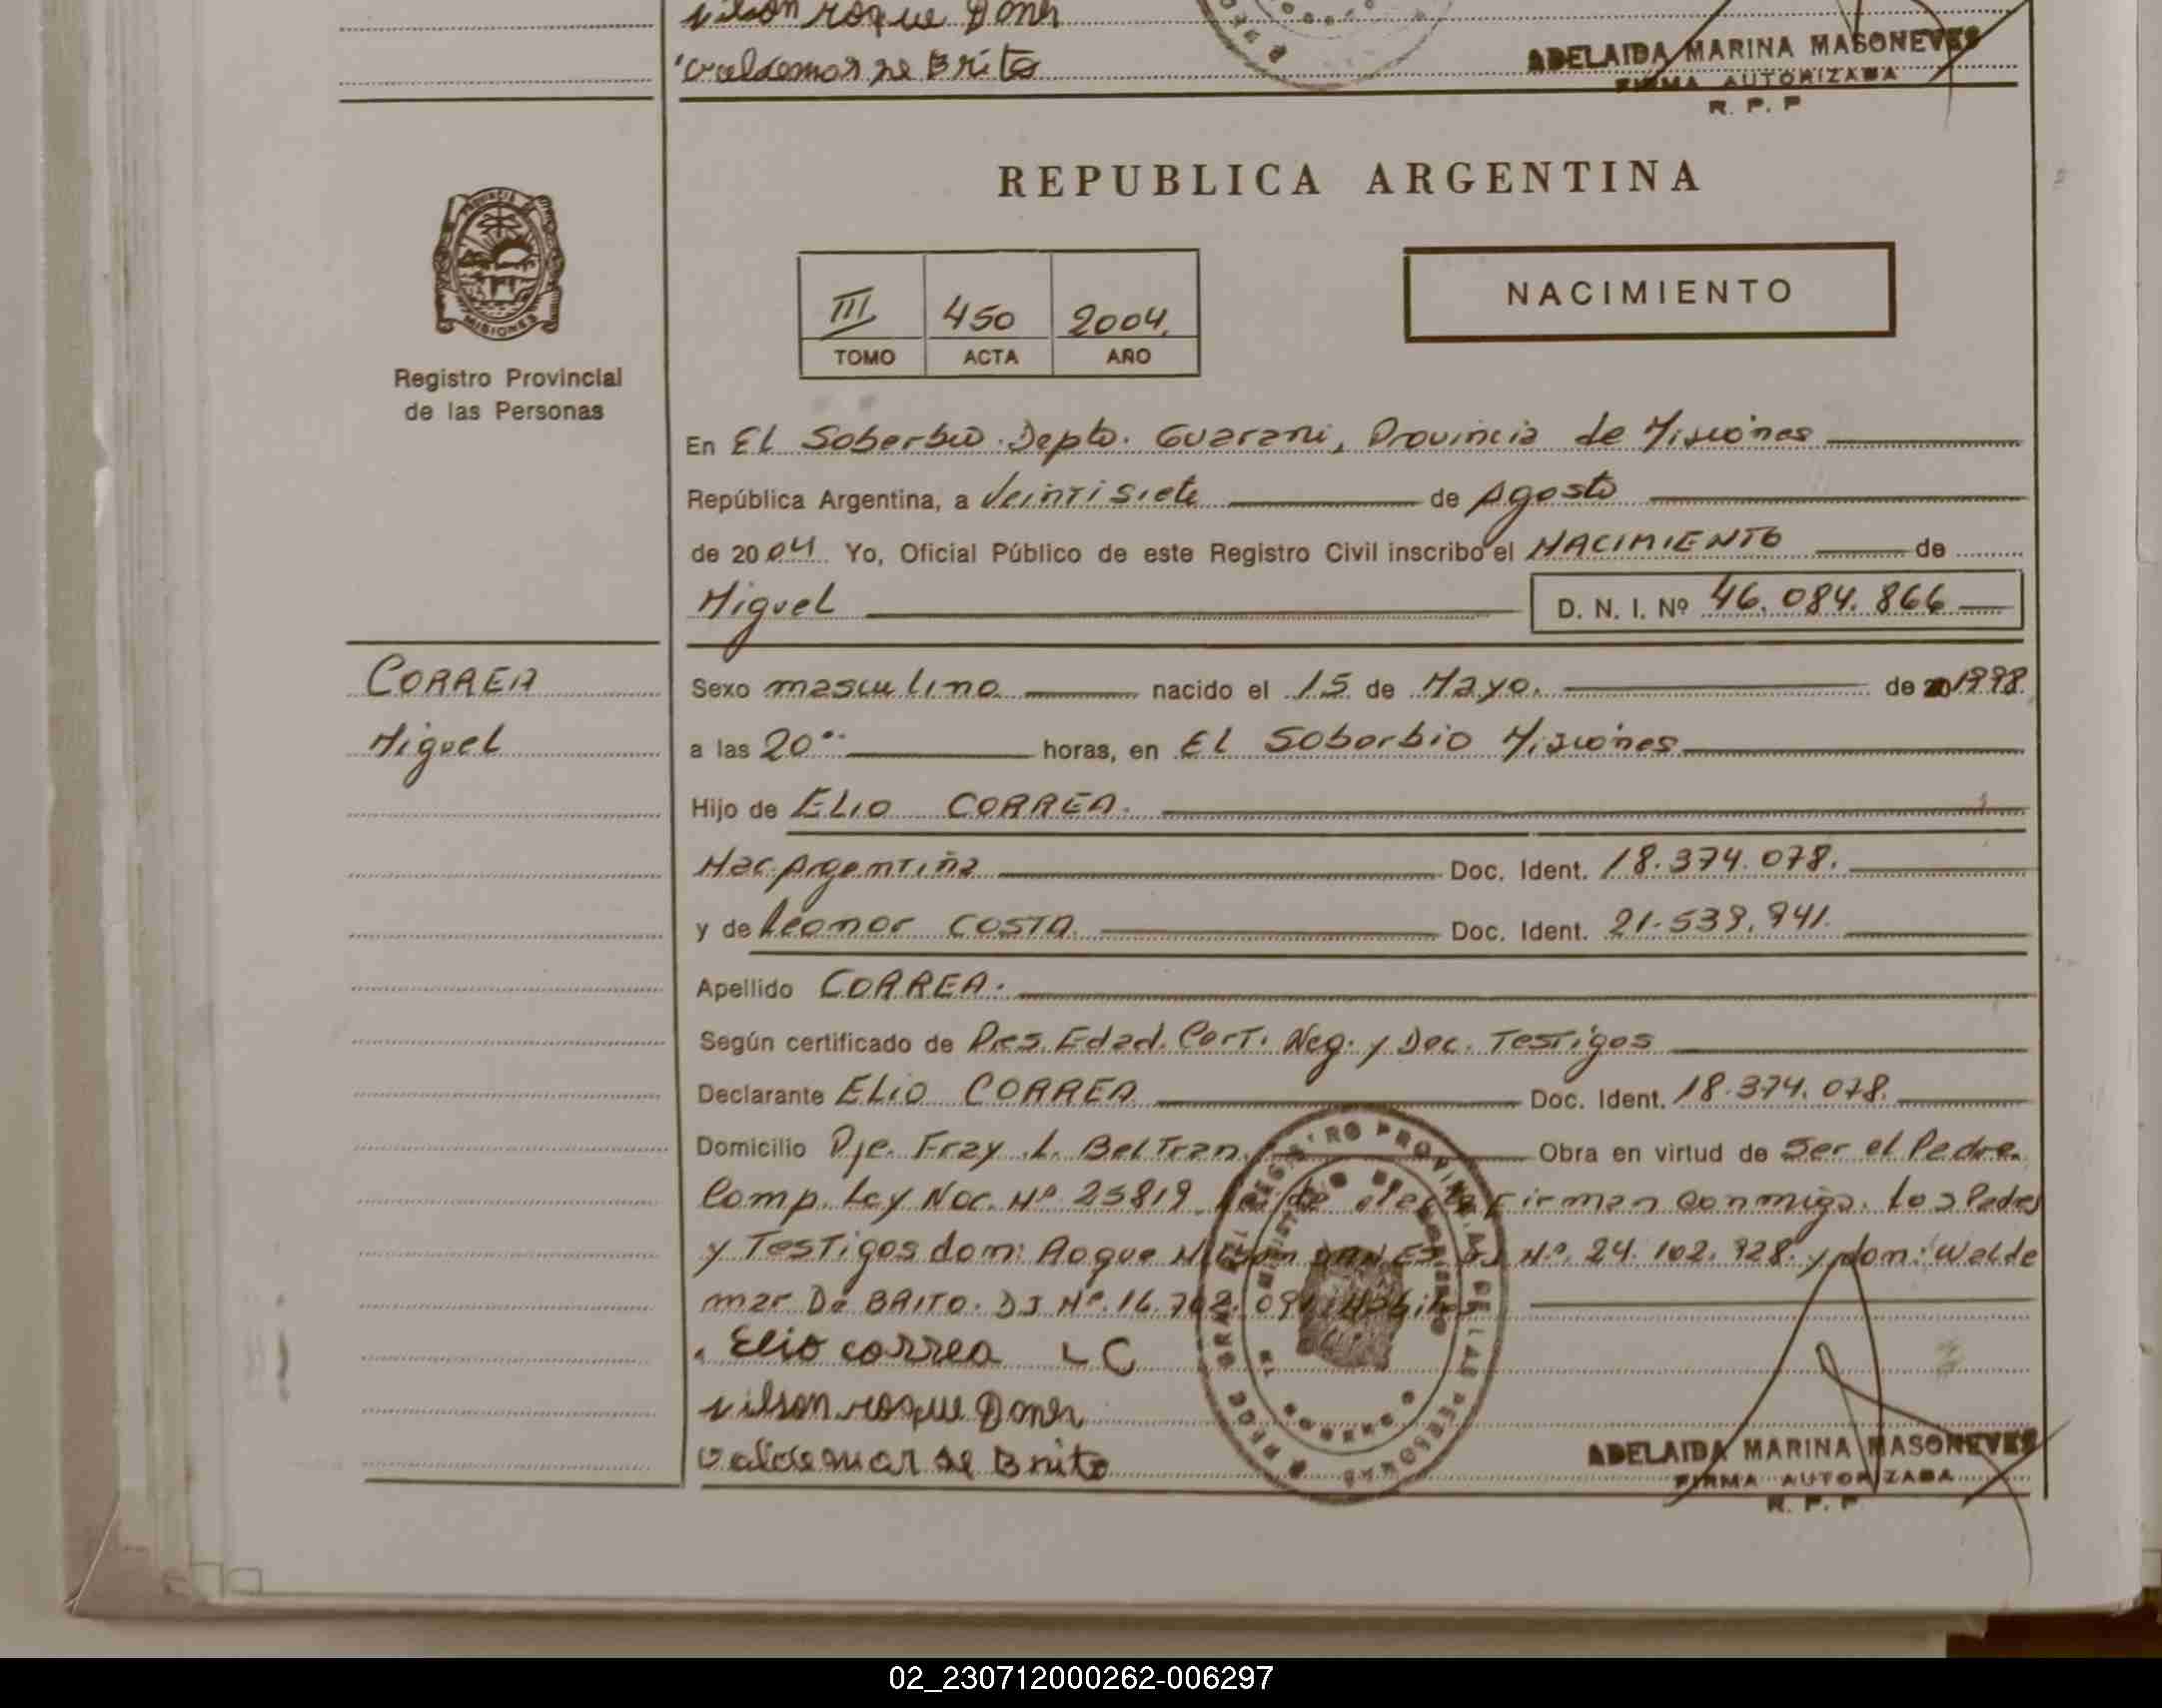 nilson roque Doner
Valdemar de Brito
ADELAIDA MARINA MASONEVES
FIRMA AUTORIZADA
R. P. P
PROVINCIA DE MISIONES
Registro Provincial
de las Personas
REPUBLICA ARGENTINA
III 450 2004
TOMO ACTA AÑO
NACIMIENTO
En El Soberbio. Depto. Guarani, Provincia de Misiones
República Argentina, a Veintisiete de Agosto
de 2004 Yo, Oficial Público de este Registro Civil inscribo el NACIMIENTO de
Miguel D. N. I. Nº 46.084.866
CORREA
Miguel
Sexo masculino nacido el 15 de Mayo. de 1998
a las 20 horas, en El Soberbio Misiones
Hijo de ELIO CORREA.
Nac. Argentina Doc. Ident. 18.374.078.
y de Leonor COSTA Doc. Ident. 21.539.941.
Apellido CORREA.
Según certificado de Pres. Edad. Cert. Neg. y Dec. Testigos
Declarante ELIO CORREA Doc. Ident. 18.374.078.
Domicilio Pje. Fray L. Beltran. Obra en virtud de Ser el Padre.
Comp. Ley Nac. Nº 25819 firman conmigo. Los Padres
y Testigos don: Roque Nilson Nº. 24.102.928. y don: Walde
mar De BRITO. DI Nº. 16.
Elio correa LC
nilson roque Doner
Valdemar de Brito
REGISTRO PROVINCIAL DE LAS PERSONAS
ADELAIDA MARINA MASONEVES
FIRMA AUTORIZADA
R. P. P
02_230712000262-006297